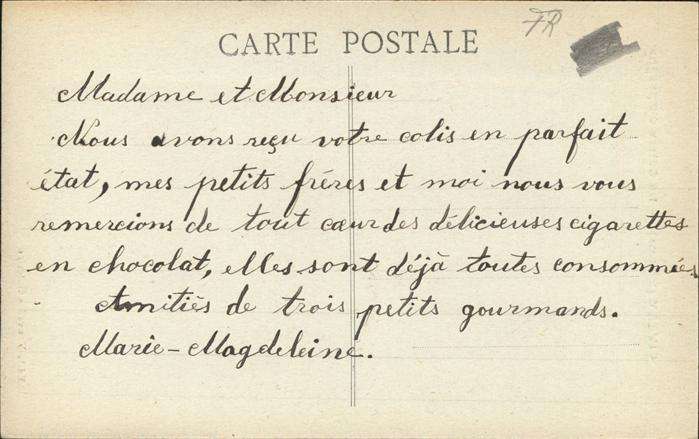 FR
CARTE POSTALE
Madame et Monsieur
Nous avons reçu votre colis en parfait
état, mes petits fréres et moi nous vous
remercions de tout cœur des délicieuses cigarettes
en chocolat, elles sont déjà toutes consommées
Amitiés de trois petits gourmands.
Marie-Magdeleine.